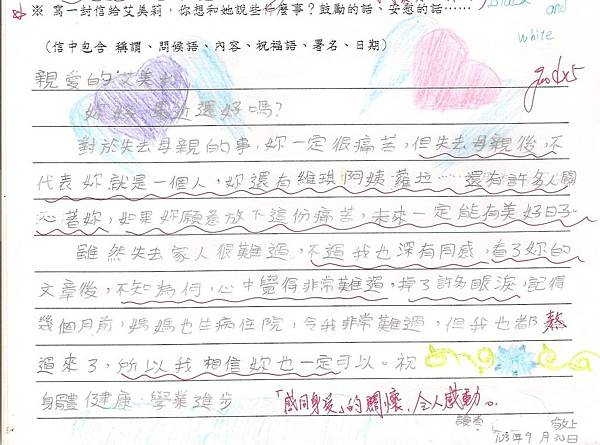 ※ 寫一封信給艾美莉，你想和她說些什麼事？鼓勵的話、安慰的話……
Black and white
（信中包含 稱謂、問候語、內容、祝福語、署名、日期）
goodx5
親愛的艾美莉
妳好，最近還好嗎？
對於失去母親的事，妳一定很痛苦，但失去母親後，不
代表妳就是一個人，妳還有維琪阿姨、蘿拉……還有許多人關
心著妳，如果妳願意放下這份痛苦，未來一定能有美好日子。
雖然失去家人很難過，不過我也深有同感，看了妳的
文章後，不知為何，心中覺得非常難過，掉了許多眼淚，記得
幾個月前，媽媽也生病住院，令我非常難過，但我也都熬
過來了，所以我相信妳也一定可以。祝
身體健康 學業進步
「感同身受」的關懷，令人感動。
讀者 敬上
103年9月30日